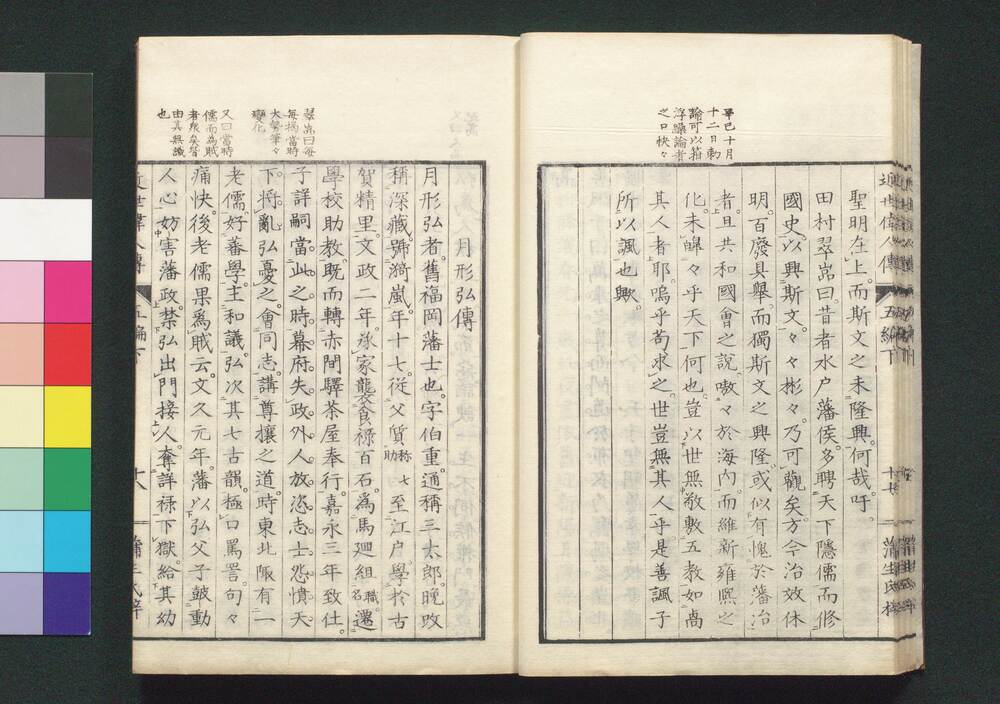 辛巳十月
十二日勅
諭可以箝
浮躁論者
之口快々
近世偉人傳
五編下
十七
蒲生氏梓
聖明在上。而斯文之未隆興。何哉吁。
田村翠嵒曰。昔者水户藩侯多聘天下隱儒而修
國史以興斯文。々々彬々。乃可觀矣。方今治效休
明。百廢具舉。而獨斯文之興隆。或似有愧於藩治
者。且共和國會之說。嗷々於海内。而維新雍熙之
化。未皥々乎天下何也。豈以世無敬敷五教如卨
其人者耶。嗚乎苟求之。世豈無其人乎。是善諷子
所以諷也歟。
翠嵒曰每
每揭當時
大勢筆々
變化
又曰當時
儒而為賊
者衆矣皆
由真無識
也
月形弘傳
月形弘者。舊福岡藩士也。字伯重。通稱三太郎。晚攺
稱深藏。號漪嵐。年十七。從父質稱七助至江户。學於古
賀精里。文政二年。承家襲食祿百石。為馬廻組職名遷
學校助教。既而轉赤間驛茶屋奉行。嘉永三年致仕。
子詳嗣。當此之時。幕府失政。外人放恣。志士怨憤。天
下將亂。弘憂之。會同志講尊攘之道。時東北陬有一
老儒。好蕃學。主和議。弘次其七古韻。極口罵詈。句々
痛快。後老儒果爲賊云。文久元年。藩以弘父子皷動
人心妨害藩政。禁弘出門接人。奪詳祿下獄。給其幼
近世偉人傳
五編下
十八
蒲生氏梓